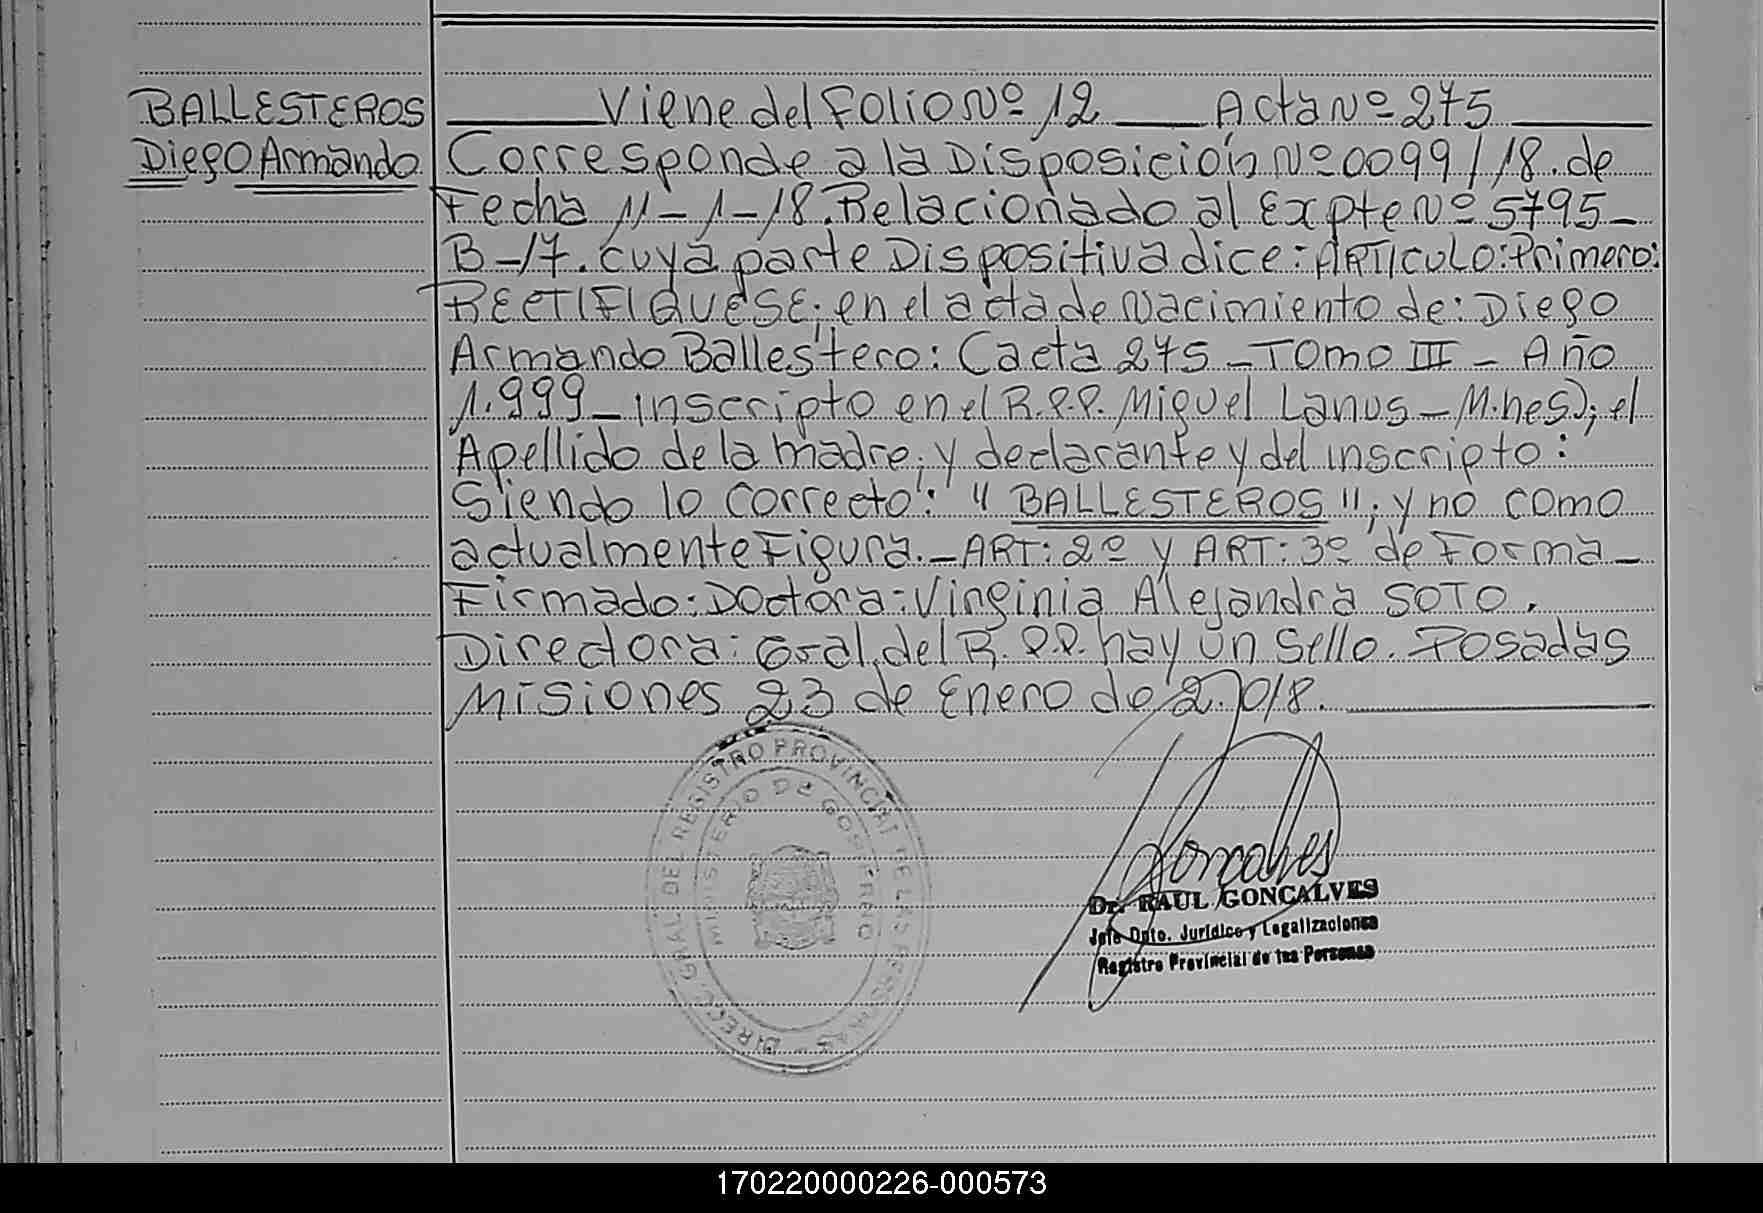 BALLESTEROS
Diego Armando
Viene del Folio Nº 12 Acta Nº 275
Corresponde a la Disposición Nº 0099/18. de
Fecha 11-1-18. Relacionado al Expte Nº 5795-
B-17. cuya parte Dispositiva dice: ARTICULO: Primero:
RECTIFIQUESE; en el acta de Nacimiento de: Diego
Armando Ballestero: (acta 275 - TOMO III - Año
1.999 - inscripto en el R.P.P. Miguel Lanus - M.nes); el
Apellido de la madre; y declarante y del inscripto:
Siendo lo correcto: "BALLESTEROS"; y no como
actualmente Figura. - ART: 2º y ART: 3º de Forma -
Firmado: Doctora: Virginia Alejandra SOTO.
Directora: Gral. del R.P.P. hay un sello. Posadas
Misiones 23 de Enero de 2.018.
DIREC. GRAL. DEL REGISTRO PROVINCIAL DE LAS PERSONAS
MINISTERIO DE GOBIERNO
Goncalves
Dr. RAUL GONCALVES
Jefe Dpto. Jurídico y Legalizaciones
Registro Provincial de las Personas
170220000226-000573